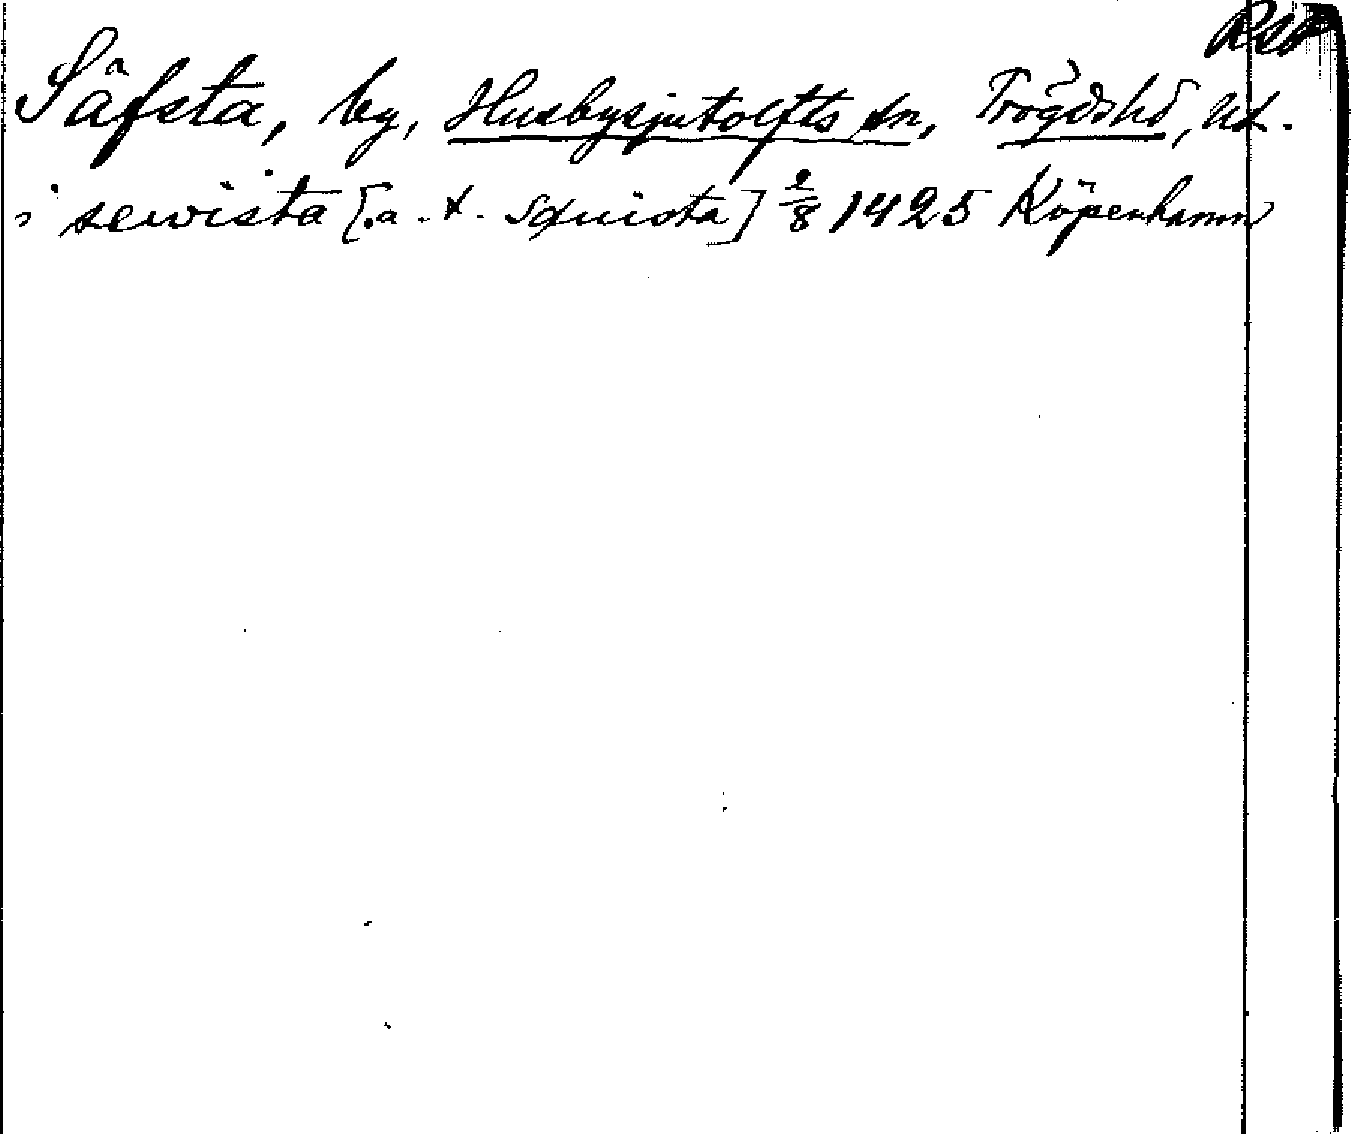 RSP
Säfsta, by, Husbysjutolfts sn, Trögds hd, Ul.
i sewista [a. t. sæuista] 2/8 1425 Köpenhamn